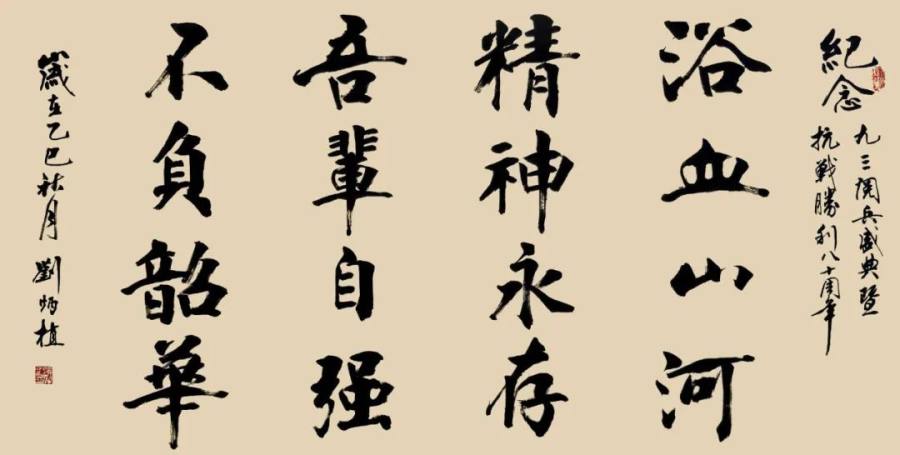 紀念
九三閱兵盛典暨
抗戰勝利八十周年
浴血山河
精神永存
吾輩自强
不負韶華
歲在乙巳秋月 劉炳植